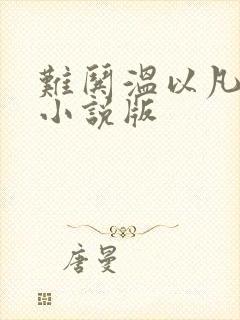 難鬨温以凡
小說版
唐曼